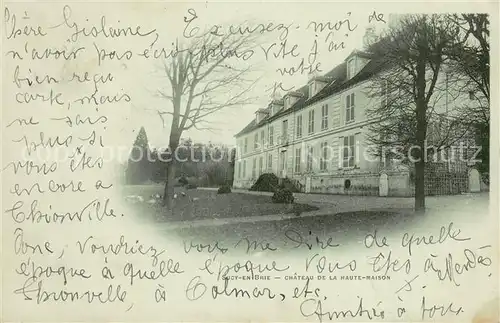 Chère Ghislaine, Excusez moi de
n'avoir pas écrit plus vite j'ai
bien reçu votre
carte, mais
ne sais
plus si
vous êtes
encore à
Thionville.
Donc, voudriez vous me dire de quelle
époque à quelle époque vous êtes à
Thionville, à Colmar, etc.
SUCY-EN-BRIE — CHÂTEAU DE LA HAUTE-MAISON
Amitiés à tous.
dreamstime